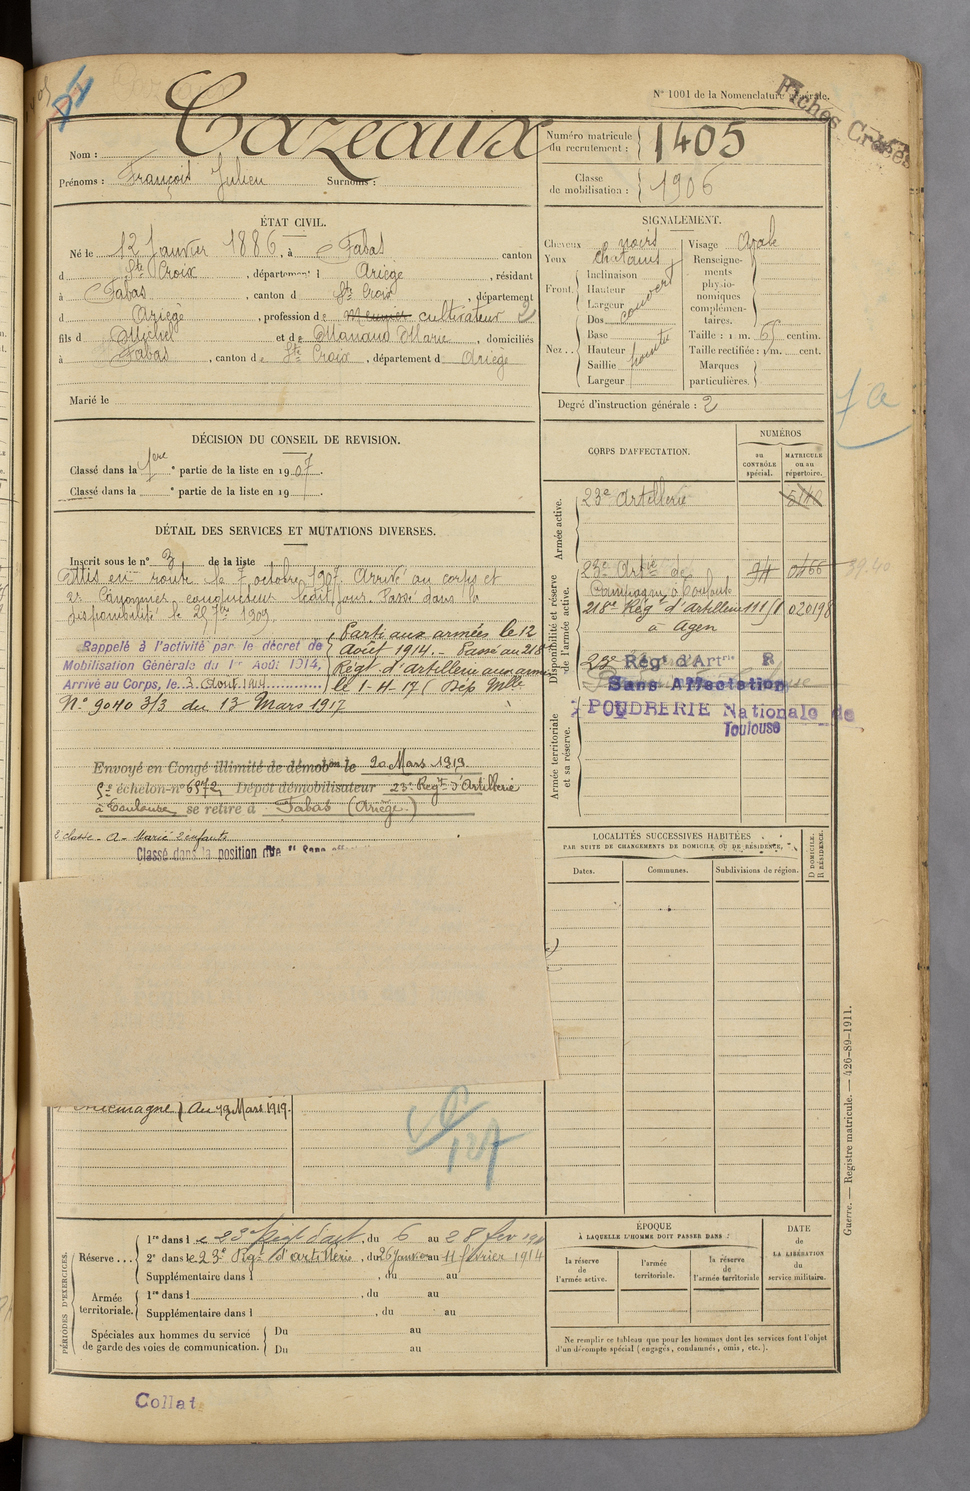 N° 1001 de la Nomenclature générale.
Fiches Créées
Nom : Cazeaux
Prénoms : François Julien Surnoms :
Numéro matricule du recrutement : 1405
Classe de mobilisation : 1906
ÉTAT CIVIL.
Né le 12 Janvier 1886, à Fabas canton
d Ste Croix, département d Ariège, résidant
à Fabas, canton d Ste Croix, département
d Ariège, profession de cultivateur 2
fils d Michel et de Manaud Marie, domiciliés
à Fabas, canton de Ste Croix, département d Ariège
Marié le
SIGNALEMENT.
Cheveux noirs
Yeux chatains
Front. Inclinaison
Hauteur
Largeur
couvert
Nez . . Dos
Base
Hauteur
Saillie
Largeur
pointu
Visage Ovale
Renseignements physionomiques complémentaires.
Taille : 1 m. 65 centim.
Taille rectifiée : 1 m. cent.
Marques particulières.
Degré d'instruction générale : 2
DÉCISION DU CONSEIL DE REVISION.
Classé dans la 1ere partie de la liste en 1907.
Classé dans la partie de la liste en 19 .
DÉTAIL DES SERVICES ET MUTATIONS DIVERSES.
Inscrit sous le n° 3 de la liste
mis en route le 7 octobre 1907. Arrivé au corps et
2e Canonnier conducteur ledit jour. Passé dans la
disponibilité le 25 7bre 1909
Rappelé à l'activité par le décret de
Mobilisation Générale du 1er Août 1914,
Arrivé au Corps, le 3 Août 1914
Parti aux armées le 12
Août 1914. - Passé au 218e
Régt d'artillerie aux armées
le 1-4-17 (Dép Mlle
N° 9040 3/3 du 13 Mars 1917
Envoyé en Congé illimité de démobon le 20 Mars 1919
5e échelon n° 6972 Dépôt démobilisateur 23e Régt d'Artillerie
à Toulouse se retire à Fabas (Ariège)
Classe - A - Marié 2 enfants
Classé dans la position dite
Allemagne) Au 19 Mars 1919.
CORPS D'AFFECTATION.
NUMÉROS
au CONTRÔLE spécial.
MATRICULE ou au répertoire.
Armée active.
23e Artillerie
Disponibilité et réserve de l'armée active.
23e Artie de
Campagne à Toulouse 94 0466
218e Régt d'Artillerie 111/1 020198
à Agen
Armée territoriale et sa réserve.
23e Régt d'Artrie R
Sans Affectation
POUDRERIE Nationale de
Toulouse
LOCALITÉS SUCCESSIVES HABITÉES
PAR SUITE DE CHANGEMENTS DE DOMICILE OU DE RÉSIDENCE.
Dates.
Communes.
Subdivisions de région.
D DOMICILE. R RÉSIDENCE.
C
127
PÉRIODES D'EXERCICES.
Réserve . . . 1re dans le 23e Régt d'art, du 6 au 28 fev
2e dans le 23e Régt d'artillerie, du 26 Janvier au 11 février 1914
Supplémentaire dans l , du au
Armée territoriale. 1re dans l , du au
Supplémentaire dans l , du au
Spéciales aux hommes du service de garde des voies de communication. Du au
Du au
ÉPOQUE
À LAQUELLE L'HOMME DOIT PASSER DANS :
la réserve de l'armée active.
l'armée territoriale.
la réserve de l'armée territoriale
DATE de LA LIBÉRATION du service militaire.
Ne remplir ce tableau que pour les hommes dont les services font l'objet
d'un décompte spécial (engagés, condamnés, omis, etc.).
Guerre. — Registre matricule. — 426-89-1911.
Collat